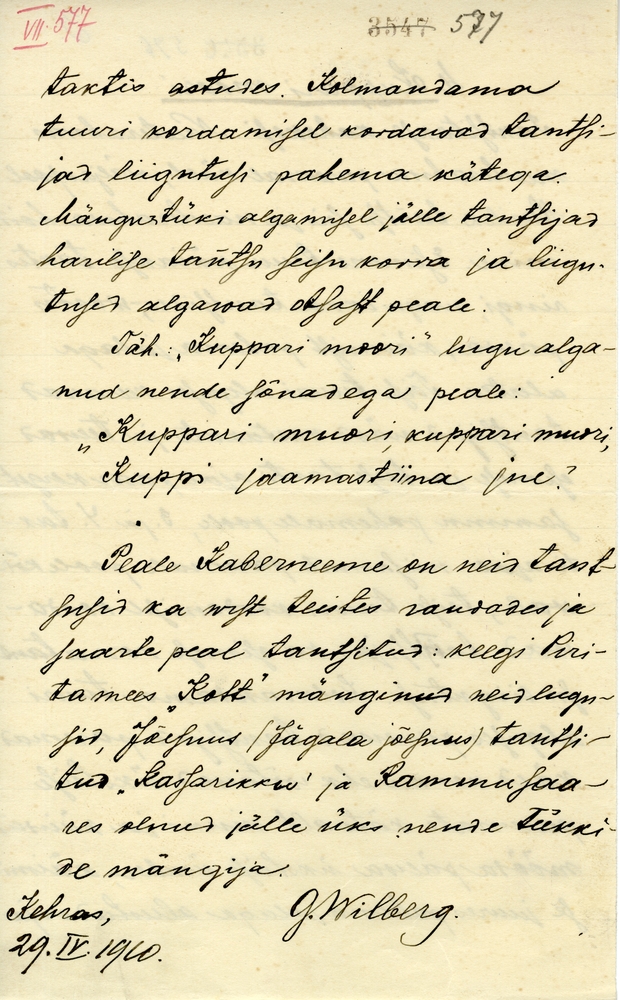 VII. 577
3547 577
taktis astudes. Kolmandama
tuuri kordamisel kordawad tantsi-
jad liigutusi pahema kätega.
Mängutüki algamisel jälle tantsijad
harilise tantsu seisu korra ja liigu-
tused algawad otsast peale.
Täh.: „Kuppari moori" lugu alga-
nud nende sõnadega peale:
„Kuppari muori, kuppari muori,
Kuppi jaamastiina jne?
Peale Kaberneeme on neid tant-
susid ka wist teistes randades ja
saarte peal tantsitud: keegi Piri-
tamees „Kott" mänginud neid lugu-
sid, Jõesuus (Jägala jõesuus) tantsi-
tud „Kassarikku' ja Rammusaa-
res olnud jälle üks nende tükki-
de mängija.
Kehras, G. Wilberg.
29. IV. 1910.